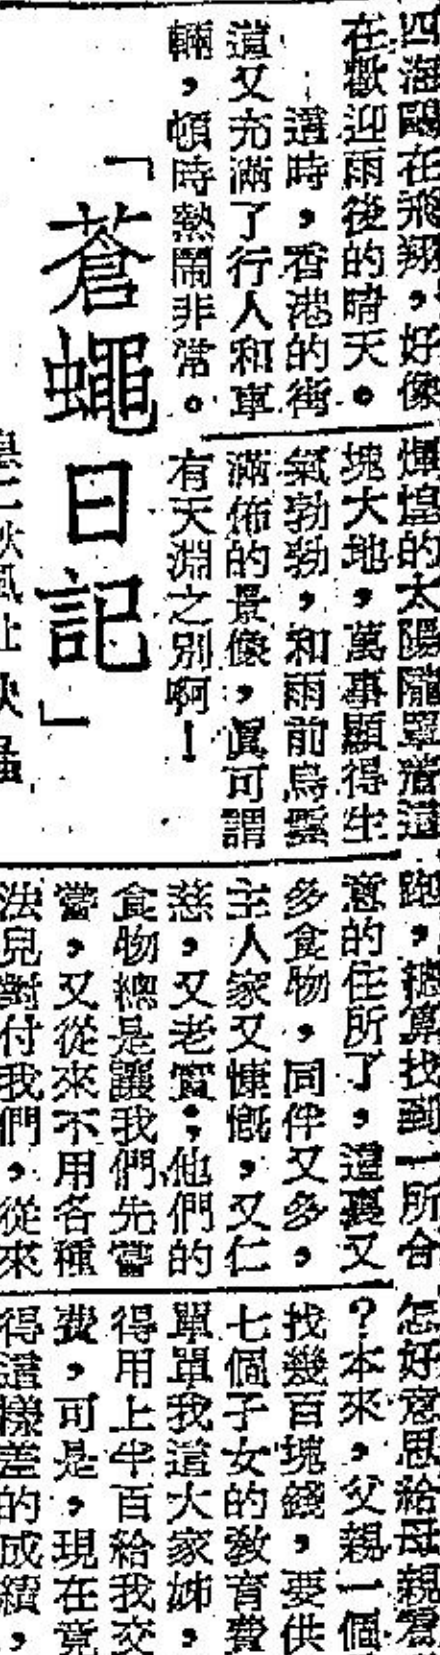 四海鷗在飛翔，好像
在歡迎雨後的晴天。
這時，香港的街
道又充滿了行人和車
輛，頓時熱鬧非常。
輝煌的太陽隴罩着這
塊大地，萬事顯得生
氣勃勃，和雨前烏雲
滿佈的景像，眞可謂
有天淵之別啊！
「蒼蠅日記」
跑，總算找到一所合
意的住所了，這裏又
多食物，同伴又多，
主人家又慷慨，又仁
慈，又老實；他們的
食物總是讓我們先嘗
嘗，又從來不用各種
法兒對付我們，從來
怎好意思給母親看
？本來，父親一個
找幾百塊錢，要供
七個子女的教育費
單單我這大家姊，
得用上半百給我交
費，可是，現在竟
得這樣差的成績，